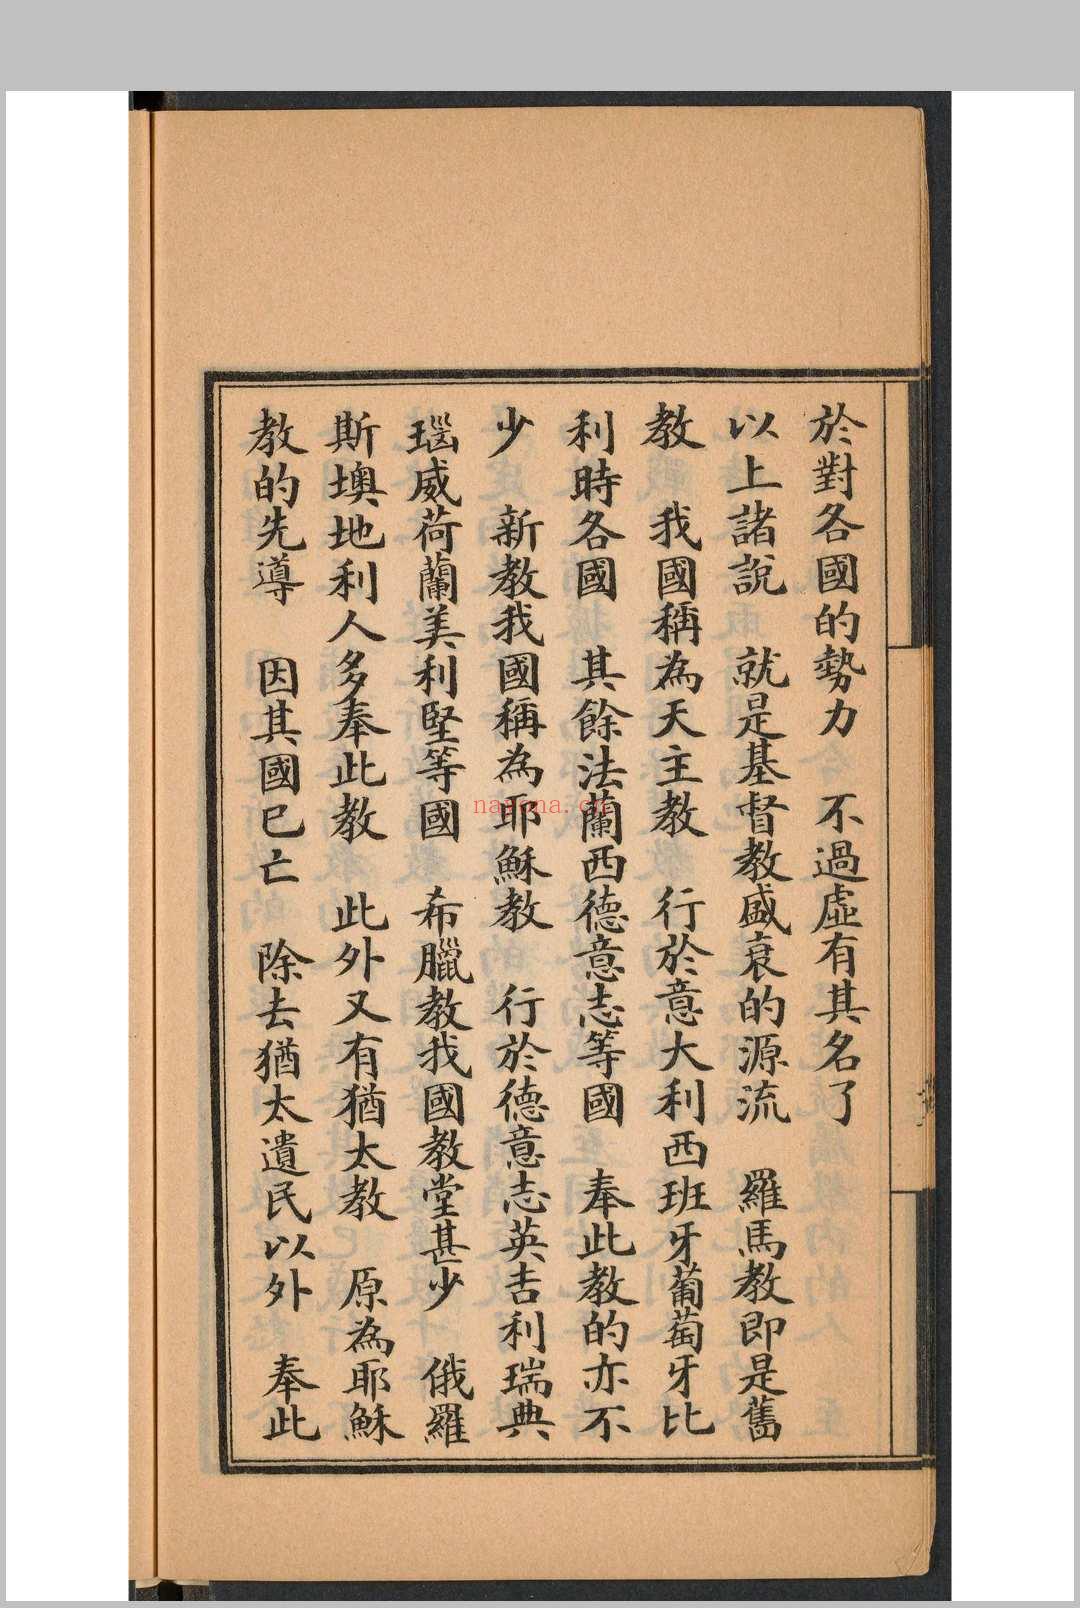 於對各國的勢力　不過虛有其名了
以上諸說　就是基督教盛衰的源流　羅馬教即是舊
教　我國稱為天主教　行於意大利西班牙葡萄牙比
利時各國　其餘法蘭西德意志等國　奉此教的亦不
少　新教我國稱為耶穌教　行於德意志英吉利瑞典
瑙威荷蘭美利堅等國　希臘教我國教堂甚少　俄羅
斯墺地利人多奉此教　此外又有猶太教　原為耶穌
教的先導　因其國已亡　除去猶太遺民以外　奉此
nayona.cn